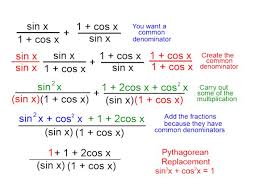 sin x / 1 + cos x + 1 + cos x / sin x You want a common denominator
sin x / sin x · sin x / 1 + cos x + 1 + cos x / sin x · 1 + cos x / 1 + cos x Create the common denominator
sin²x / (sin x)(1 + cos x) + 1 + 2cos x + cos²x / (sin x)(1 + cos x) Carry out some of the multiplication
sin²x + cos²x + 1 + 2cos x / (sin x)(1 + cos x) Add the fractions because they have common denominators
1 + 1 + 2cos x / (sin x)(1 + cos x) Pythagorean Replacement sin²x + cos²x = 1